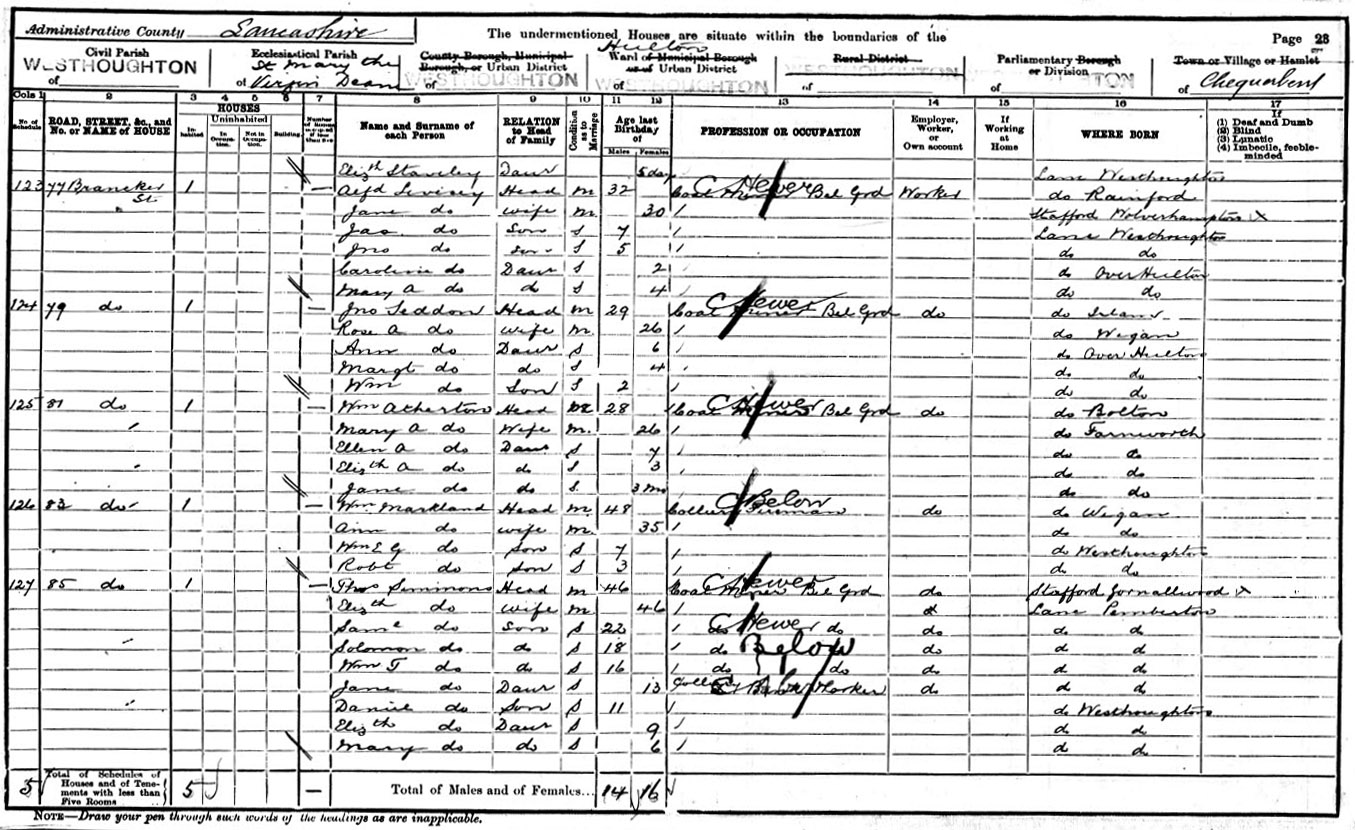 Administrative County Lancashire The undermentioned Houses are situate within the boundaries of the Page 23
Civil Parish of WESTHOUGHTON
Ecclesiastical Parish of St Mary the Virgin Deane
County Borough, Municipal Borough, or Urban District of WESTHOUGHTON
Hulton Ward of Municipal Borough or of Urban District WESTHOUGHTON
Rural District
Parliamentary Borough or Division of
Town or Village or Hamlet of Chequerbent
Cols 1 2 3 4 5 6 7 8 9 10 11 12 13 14 15 16 17
No. of Schedule
ROAD, STREET, &c., and No. or NAME of HOUSE
HOUSES
Inhabited
Uninhabited
In Occupation.
Not in Occupation.
Building
Name and Surname of each Person
RELATION to Head of Family
Condition as to Marriage
Age last Birthday of
Males Females
PROFESSION OR OCCUPATION
Employer, Worker, or Own account
If Working at Home
WHERE BORN
If (1) Deaf and Dumb (2) Blind (3) Lunatic (4) Imbecile, feeble-minded
Elizth Staveley Daur 5 day Lanc Westhoughton
123 77 Brancker St 1 — Alfd Head M 32 Coal Miner Hewer Bel Grd Worker do Rainford
Jane do wife M 30 Stafford Wolverhampton X
Jas do Son S 7 Lanc Westhoughton
Jno do son S 5 do do
Caroline do Daur S 2 do Over Hulton
Mary A do do S 4 do do
124 79 do 1 — Jno Seddon Head M 29 Coal Miner Hewer Bel Grd do do
Rose A do wife M 26 do Wigan
Ann do Daur S 6 do Over Hulton
Margt do do S 4 do do
Wm do Son S 2 do do
125 81 do 1 — Wm Atherton Head M 28 Coal Miner Hewer Bel Grd do do Bolton
Mary A do Wife M 26 do Farnworth
Ellen A do Daur S 7 do do
Elizth A do do S 3 do do
Jane do do S 3 mo do do
126 83 do 1 Wm Markland Head M 48 Colliery Fireman Below do do Wigan
Ann do wife M 35 do do
Wm E G do Son S 7 do Westhoughton
Robt do Son S 3 do do
127 85 do 1 — Thos Simmons Head M 46 Coal Miner Hewer Bel Grd do Stafford Gornallwood X
Elizth do wife M 46 Lanc Pemberton
Saml do Son S 22 do Hewer do do do d
Solomon do do S 18 do Below do do d
Wm T do do S 16 do do do d d
Jane do Daur S 13 Worker do d d
Daniel do Son S 11 do Westhoughton
Elizth do Daur S 9 d d
Mary do do S 6 d d
5 Total of Schedules of Houses and of Tenements with less than Five Rooms 5 — Total of Males and of Females... 14 16
NOTE—Draw your pen through such words of the headings as are inapplicable.